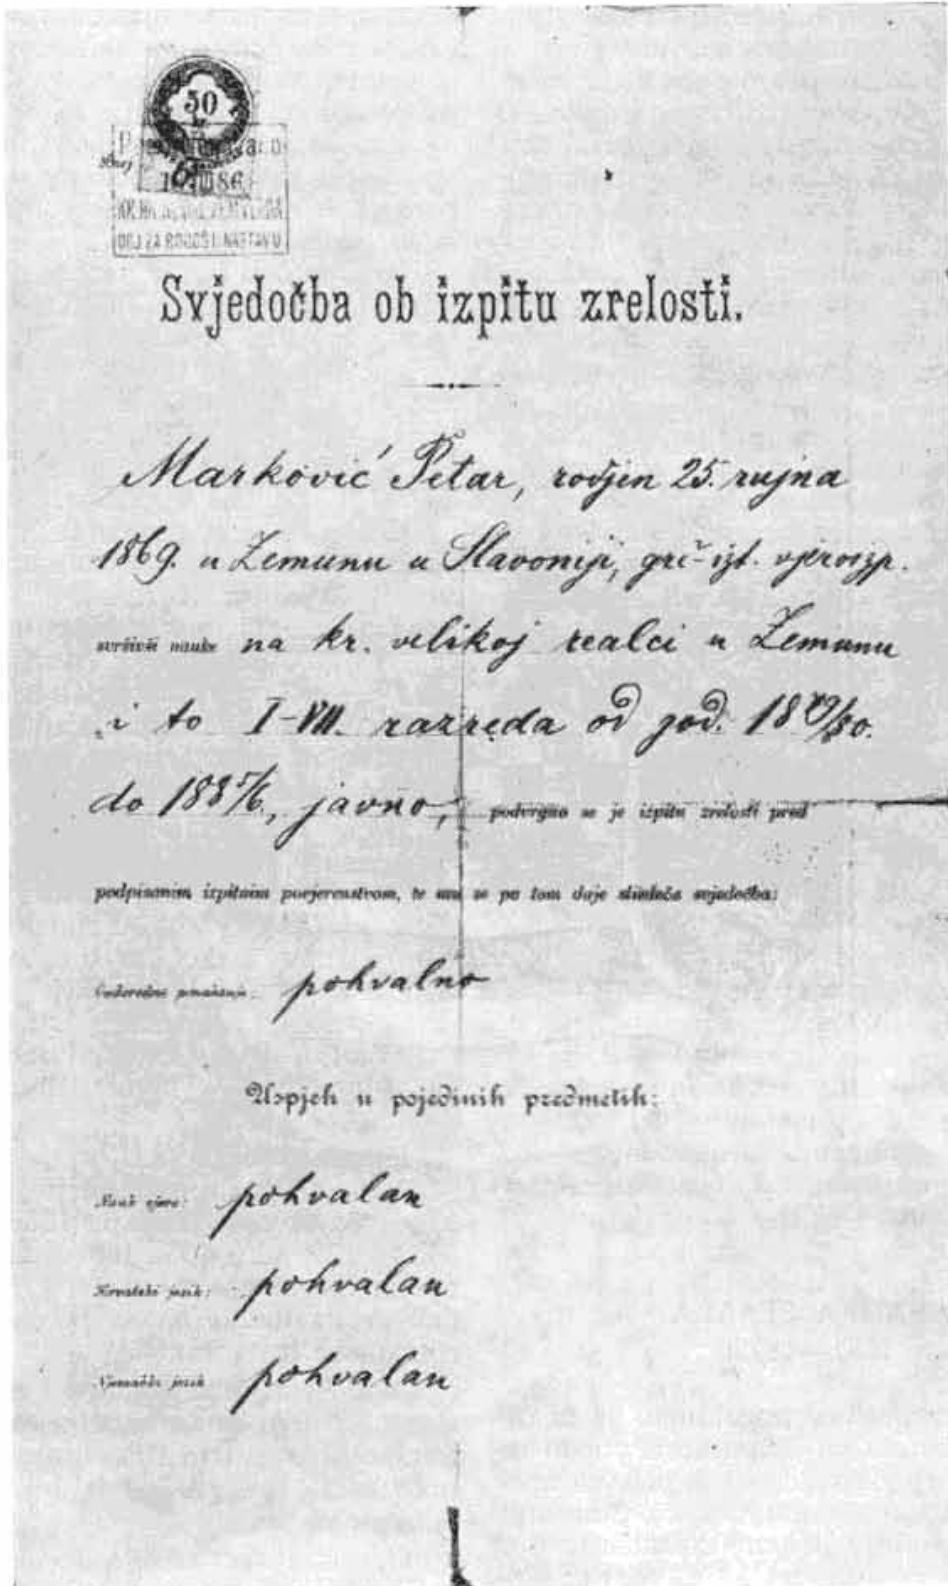 50
186
Svjedočba ob izpitu zrelosti.
Marković Petar, rodjen 25. rujna
1869. u Zemunu u Slavoniji, grč-izt. vjeroizp.
svršivši nauke na kr. velikoj realci u Zemunu
i to I-VII. razreda od god. 1879/80.
do 1885/6., javno, podvrgao se je izpitu zrelosti pred
podpisanim izpitnim povjerenstvom, te mu se po tom daje sliedeća svjedočba:
Ćudoredno ponašanje: pohvalno
Uspjeh u pojedinih predmetih:
Nauk vjere: pohvalan
Hrvatski jezik: pohvalan
Njemački jezik: pohvalan